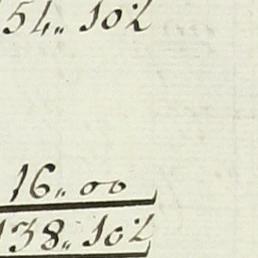 154,, 10½
16,, 00
138,, 10½